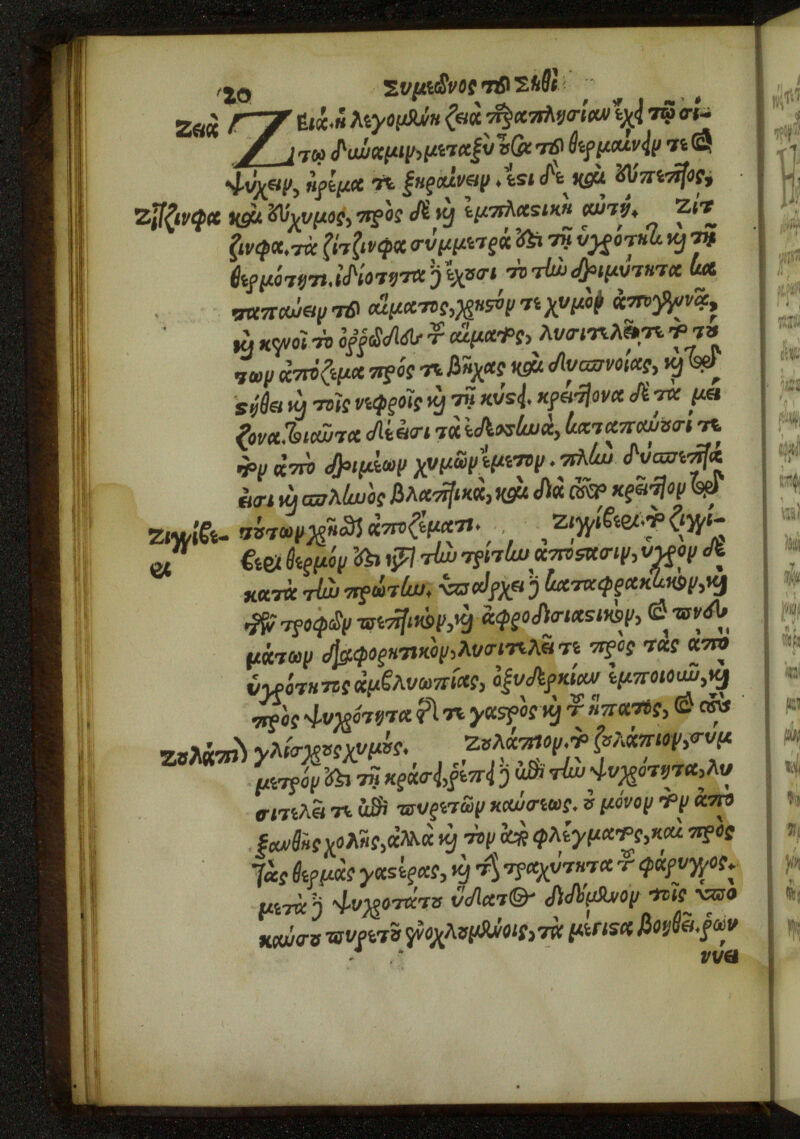 20 Συμεῶνος τοῦ Σήθι
Ζειὰ
ΖΕιὰ. ἡ λεγομένη ζειὰ παραπλησίαν ἔχει τῷ σί-
τῳ δύναμιν, μεταξὺ οὖσα τοῦ θερμαίνειν τε καὶ
ψύχειν, ἠρέμα τε ξηραίνειν. ἔστι δὲ καὶ εὔπεπτος,
Ζίτζινφα καὶ εὔχυμος, πρὸς δὲ καὶ ἐμπλαστικὴ αὐτή. Ζίτ
ζινφα. τὰ ζίτζινφα σύμμετρά ἐστι τῇ ὑγρότητι καὶ τῇ
θερμότητι. ἰδιότητα δὲ ἔχουσι τὸ τὴν δριμύτητα κα
ταπαύειν τοῦ αἵματος, χρηστόν τε χυμὸν ἀπογεννᾶν,
καὶ κενοῖ τὸ ὀρρῶδες τοῦ αἵματος, λυσιτελεῖ τε τὸ τού
των ἀπόζεμα πρός τε βῆχας καὶ δυσπνοίας, καὶ τῷ
στήθει καὶ τοῖς νεφροῖς καὶ τῇ κύστει. κρείττονα δὲ τὰ μεί
ζονα. τοιαῦτα δέ εἰσι τὰ καταπαύουσί τε
τὸν ἀπὸ δριμέων χυμῶν ἔμετον. πλὴν δύσπεπτά
εἰσι καὶ σπληνὸς βλαπτικὰ, καὶ διὰ τοῦτο κρεῖττον τῷ
Ζιγγίβε-
ρι
τούτων χρῆσθαι ἀποζέματι. Ζιγγίβερι. τὸ ζιγγί-
βερι θερμόν ἐστι κατὰ τὴν τρίτην ἀπόστασιν, ὑγρὸν δὲ
κατὰ τὴν πρώτην. ὑπάρχει δὲ καταφρακτικὸν, καὶ
τῶν τροφῶν πεπτικὸν, καὶ ἀφροδισιαστικὸν, καὶ πνευ
μάτων διαφορητικὸν, λυσιτελεῖ τε πρὸς τὰς ἀπὸ
ὑγρότητος ἀμβλυωπίας, ὀξυδερκίαν ἐμποιοῦν, καὶ
πρὸς ψυχρότητα τῆς τε γαστρὸς καὶ τοῦ ἥπατος, καὶ τοὺς
Ζουλάπιον γλίσχρους χυμούς. Ζουλάπιον. τὸ ζουλάπιον, σύμ
μετρόν ἐστι τῇ κράσει, ῥέπει δὲ ἐπὶ τὴν ψυχρότητα, λυ
σιτελεῖ τε ἐπὶ πυρετῶν καύσεως. οὐ μόνον τὸν ἀπὸ
ξανθῆς χολῆς, ἀλλὰ καὶ τὸν ἀπὸ φλέγματος, καὶ πρὸς
τὰς θερμὰς γαστέρας, καὶ τὴν τραχύτητα τοῦ φάρυγγος.
μετὰ δὲ ψυχροτάτου ὕδατος διδόμενον τοῖς ὑπὸ
καύσου πυρετοῦ ἐνοχλουμένοις, τὰ μέγιστα βοηθεῖ. ῥων
νύει